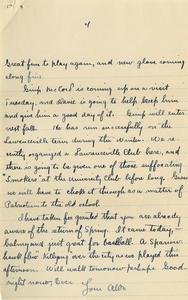 4
Great fun to play again, and new glove coming
along fine.
Gimp McCord is coming up on a visit
Tuesday, and Dave is going to help keep him
and give him a good day of it. Gimp will enter
next fall. He has run successfully on the
Lawrenceville team during the Winter. We re-
cently organized a Lawrenceville Club here, and
there is going to be given one of those suffocating
"Smokers" at the University Club before long. Guess
we will have to choke it through as a matter of
Patriotism to the old school.
I have taken for granted that you are already
aware of the return of Spring. It came today -
balmy and just great for baseball. A Sparrow
hawk flew killying over the city as we played this
afternoon. Will walk tomorrow perhaps. Good
night now. Ever
Your